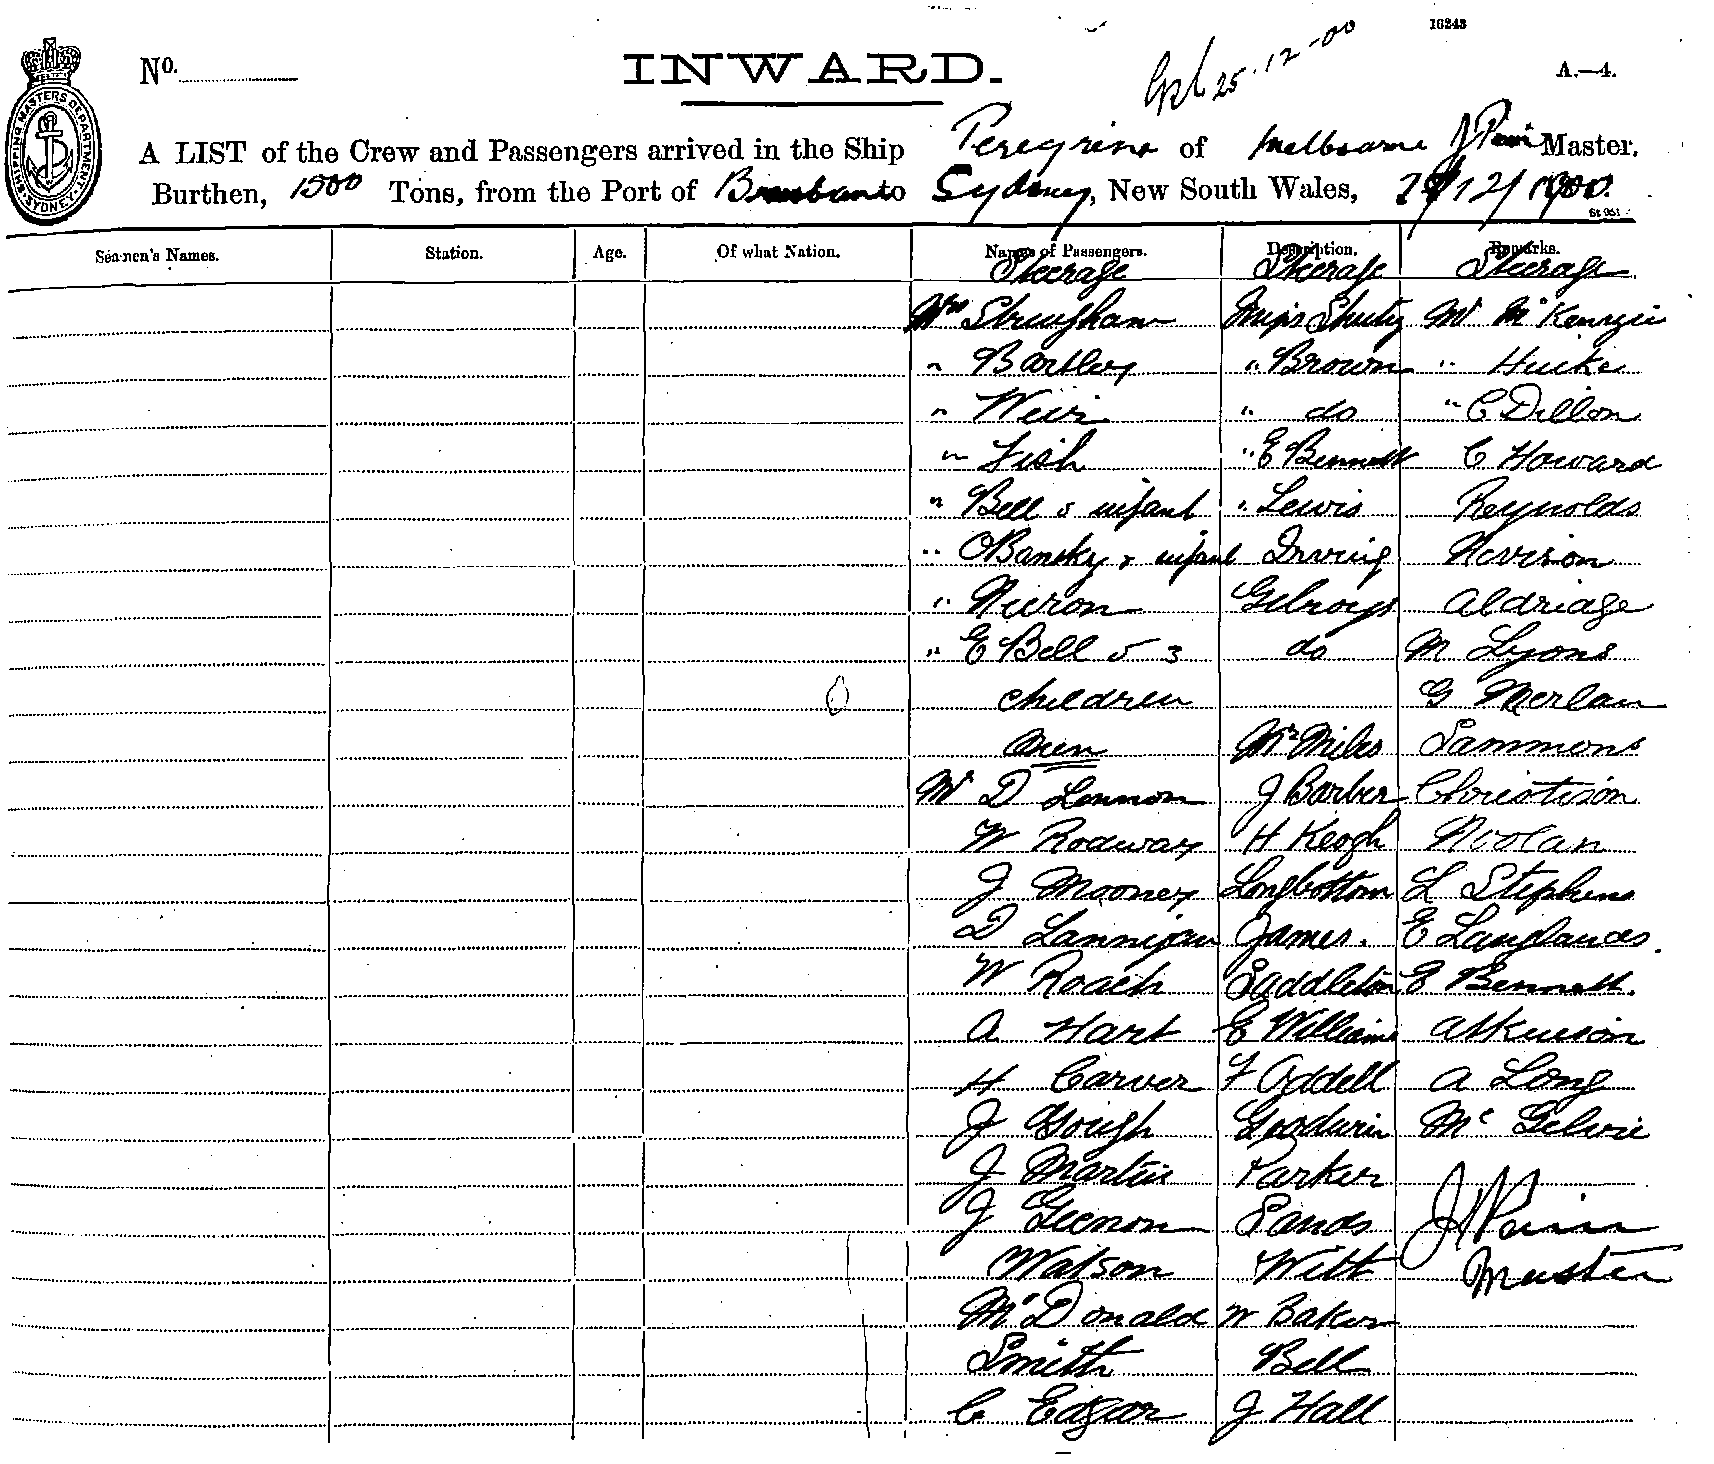 16243
25-12-00
No.
INWARD.
A.—4.
SHIPPING MASTERS DEPARTMENT SYDNEY
A LIST of the Crew and Passengers arrived in the Ship Peregrine of Melbourne Master.
Burthen, 1500 Tons, from the Port of Brisbane to Sydney, New South Wales, /12/1900.
Seamen's Names. Station. Age. Of what Nation. Names of Passengers. Description. Remarks.
Steerage Steerage Steerage
Mrs Stringham Misses Mr McKenzie
" Bartley " Brown " Hucke
" Weir " do " C Dillon
" Fish " E Bennett C Howard
" Bell & infant " Lewis Reynolds
" & infant Irving Nevison
" Gilroys Aldridge
" E Bell & 3 do M Lyons
children G Merlan
Men Mr Miles Sammons
Mr D Lennon J Barber Christison
W Rodway H Keogh Noolan
J Mooney Longbottom L Stephens
D Lannigan James. E Langlands.
W Roach Saddleton E Bennett.
A Hart E Williams Atkinson
H Carver F Oddell A Long
J Gough Goodwin McGilvie
J Martin Parker
J Sands
Watson Witt Master
McDonald W Baker
Smith Bell
C Edgar J Hall